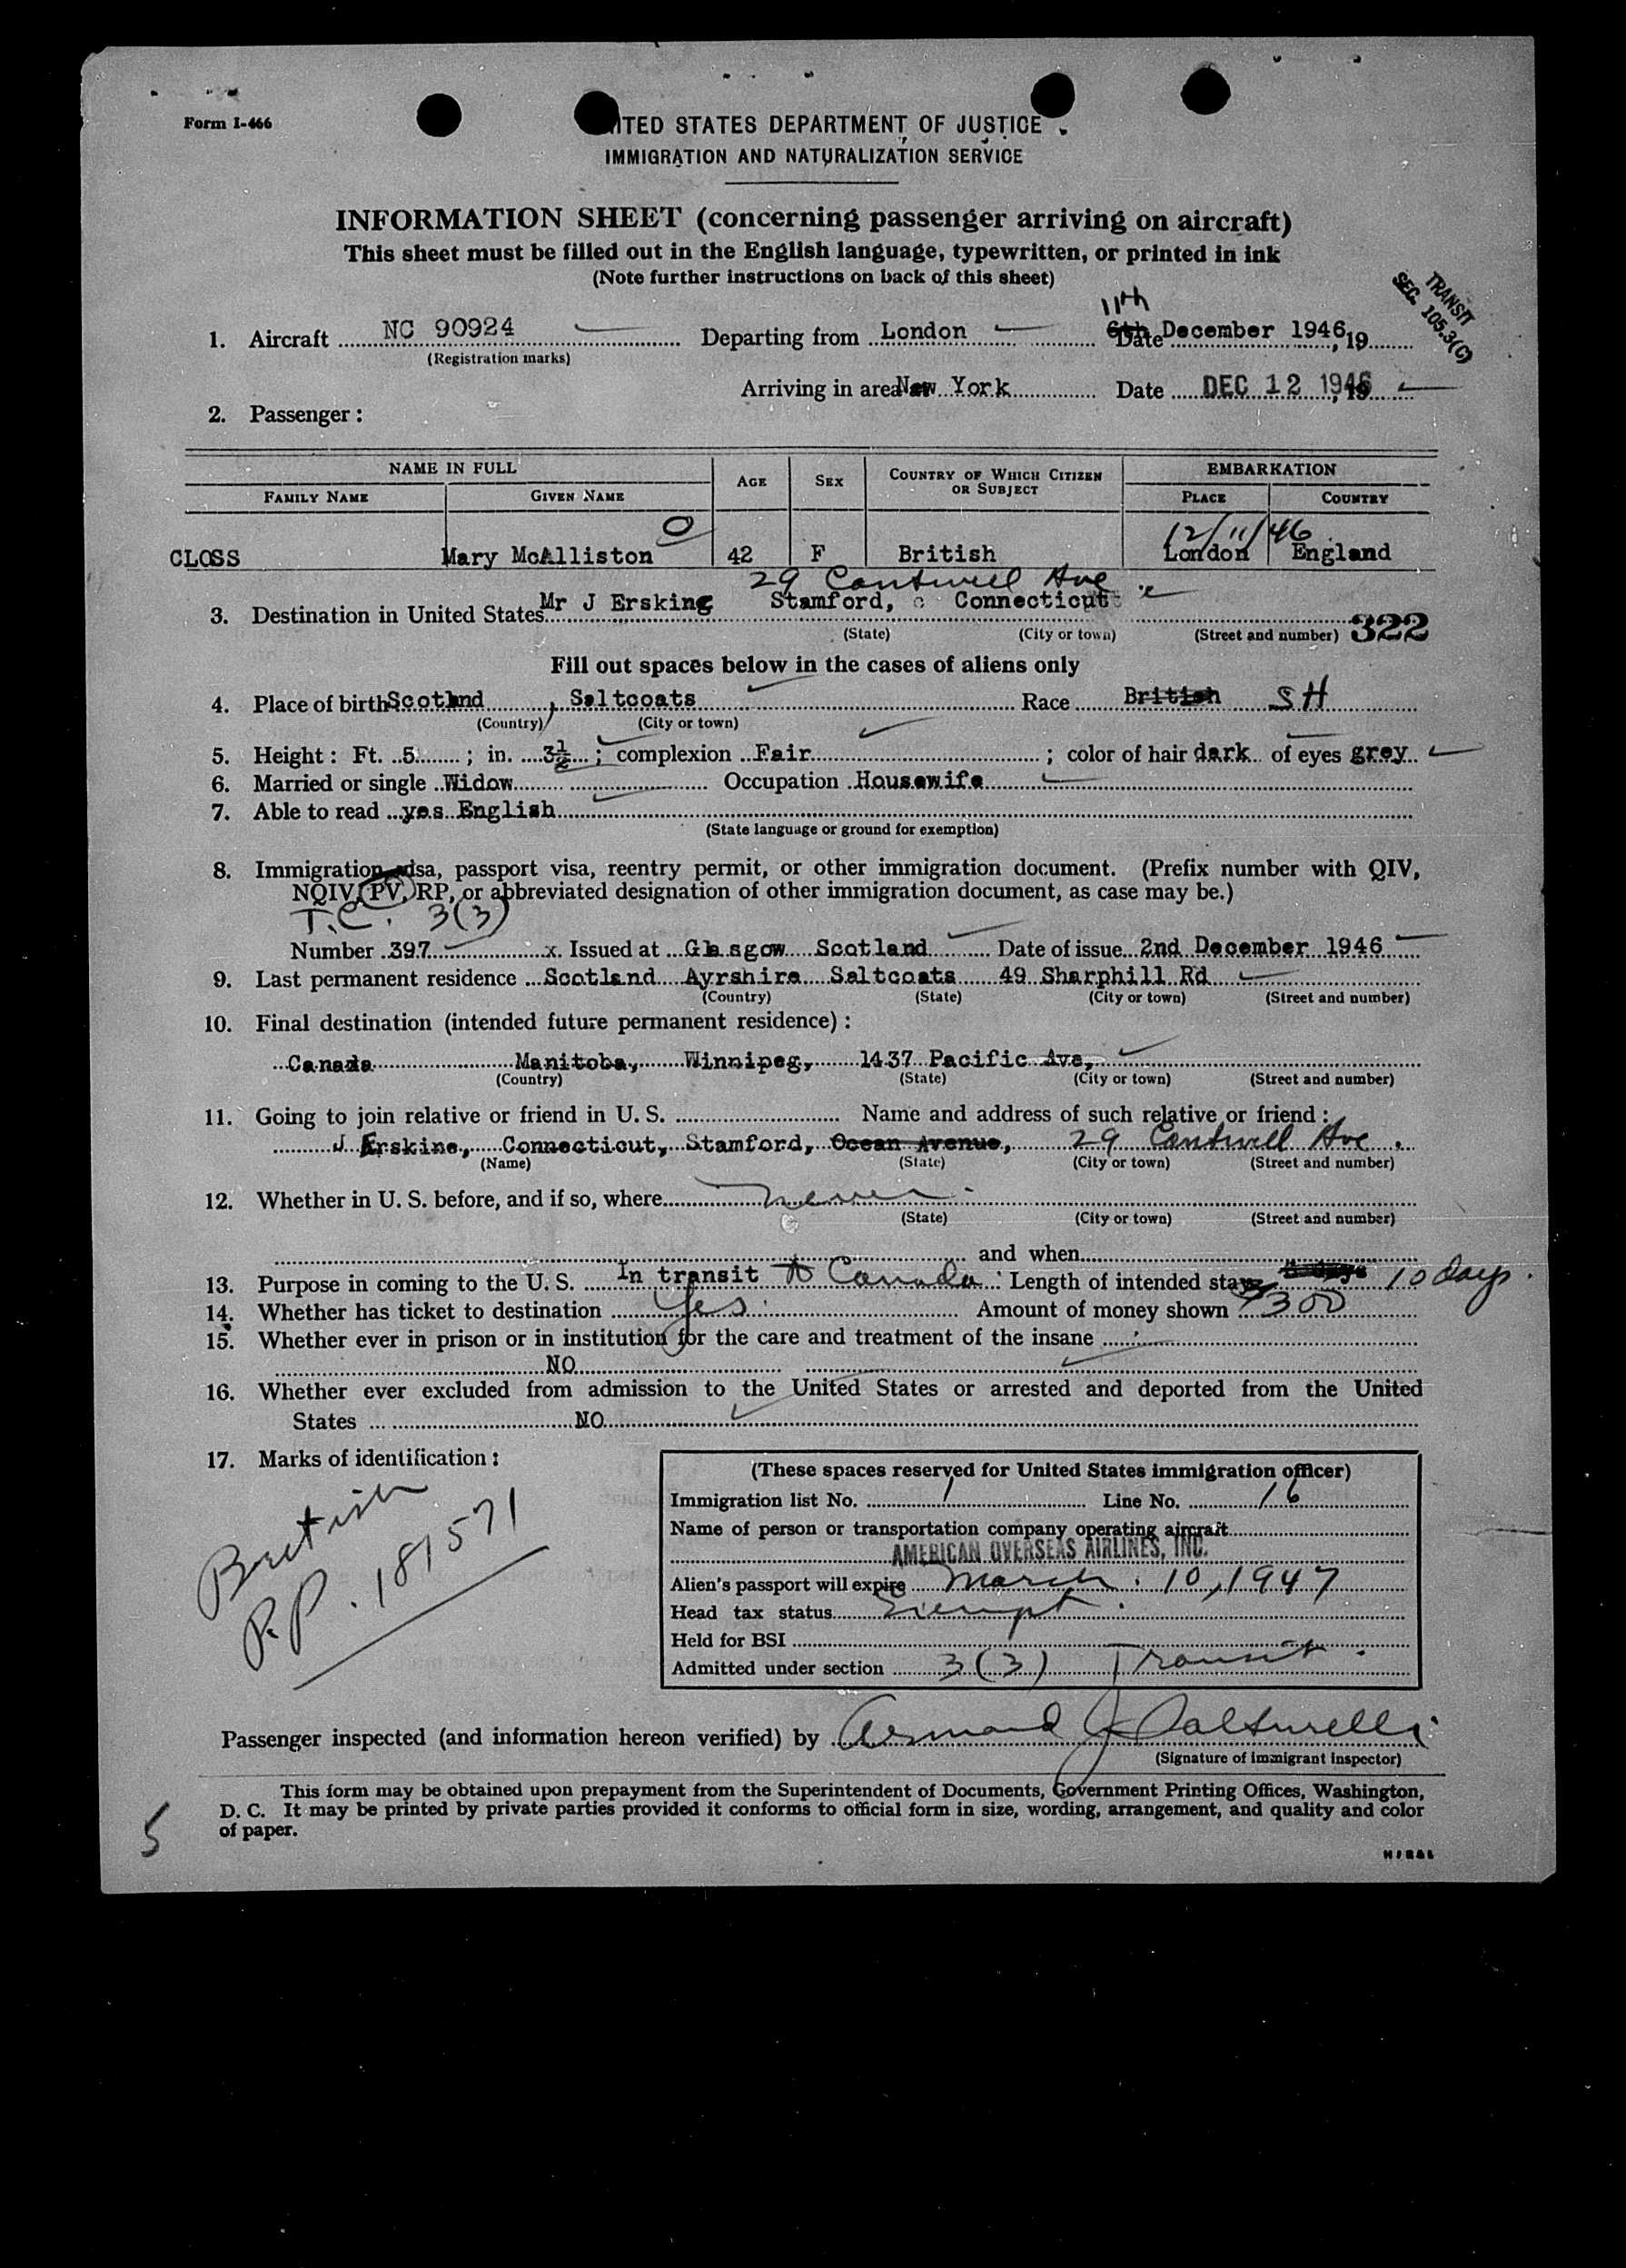 Form I-466
UNITED STATES DEPARTMENT OF JUSTICE
IMMIGRATION AND NATURALIZATION SERVICE
INFORMATION SHEET (concerning passenger arriving on aircraft)
This sheet must be filled out in the English language, typewritten, or printed in ink
(Note further instructions on back of this sheet)
TRANSIT
SEC. 105.3(C)
11th
1. Aircraft NC 90924 Departing from London 6th Date December 1946, 19
(Registration marks)
Arriving in area New York Date DEC 12 1946, 19
2. Passenger:
NAME IN FULL AGE SEX COUNTRY OF WHICH CITIZEN OR SUBJECT EMBARKATION
FAMILY NAME GIVEN NAME PLACE COUNTRY
O 12/11/46
CLOSS Mary McAlliston 42 F British London England
29 Cantwell Ave
3. Destination in United States Mr J Erskine Stamford, Connecticut
(State) (City or town) (Street and number) 322
Fill out spaces below in the cases of aliens only
4. Place of birth Scotlnd, Saltcoats Race British SH
(Country) (City or town)
5. Height: Ft. 5; in. 3½; complexion Fair; color of hair dark of eyes grey
6. Married or single Widow Occupation Housewife
7. Able to read yes English
(State language or ground for exemption)
8. Immigration visa, passport visa, reentry permit, or other immigration document. (Prefix number with QIV,
NQIV, PV, RP, or abbreviated designation of other immigration document, as case may be.)
T.C. 3(3)
Number 397 x. Issued at Glasgow Scotland Date of issue 2nd December 1946
9. Last permanent residence Scotland Ayrshire Saltcoats 49 Sharphill Rd
(Country) (State) (City or town) (Street and number)
10. Final destination (intended future permanent residence):
Canada Manitoba, Winnipeg, 1437 Pacific Ave,
(Country) (State) (City or town) (Street and number)
11. Going to join relative or friend in U. S. Name and address of such relative or friend:
J Erskine, Connecticut, Stamford, Ocean Avenue, 29 Cantwell Ave.
(Name) (State) (City or town) (Street and number)
12. Whether in U. S. before, and if so, where never
(State) (City or town) (Street and number)
and when
13. Purpose in coming to the U. S. In transit to Canada Length of intended stay 10 days.
14. Whether has ticket to destination Yes Amount of money shown $300
15. Whether ever in prison or in institution for the care and treatment of the insane
NO
16. Whether ever excluded from admission to the United States or arrested and deported from the United
States NO
17. Marks of identification:
British
P.P. 181571
(These spaces reserved for United States immigration officer)
Immigration list No. 1 Line No. 16
Name of person or transportation company operating aircraft
AMERICAN OVERSEAS AIRLINES, INC.
Alien's passport will expire March 10, 1947
Head tax status Exempt.
Held for BSI
Admitted under section 3(3) Transit.
Passenger inspected (and information hereon verified) by Armand J
(Signature of immigrant inspector)
This form may be obtained upon prepayment from the Superintendent of Documents, Government Printing Offices, Washington,
D. C. It may be printed by private parties provided it conforms to official form in size, wording, arrangement, and quality and color
of paper.
5